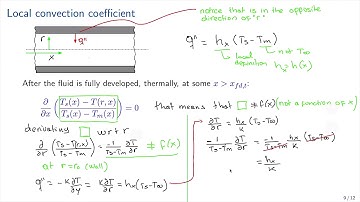 Local convection coefficient
notice that is in the opposite
direction of "r"
r
x
q"
q" = hx (Ts - Tm)
Local definition
not T∞
hx = h(x)
After the fluid is fully developed, thermally, at some x > xfd,t:
∂/∂x [ (Ts(x) − T(r,x)) / (Ts(x) − Tm(x)) ] = 0
that means that □ ≠ f(x) (not a function of x)
derivating □ wrt r
∂/∂r ( (Ts - T(r,x)) / (Ts - Tm) ) = -1/(Ts - Tm) ∂T/∂r ≠ f(x)
∂T/∂r = hx/k (Ts - T∞)
-1/(Ts - Tm) ∂T/∂r = -1/(Ts - T∞) hx/k (Ts - T∞)
= hx/k
at r = r0 (wall)
q" = -k ∂T/∂y = k ∂T/∂r = hx (Ts - T∞)
9 / 12